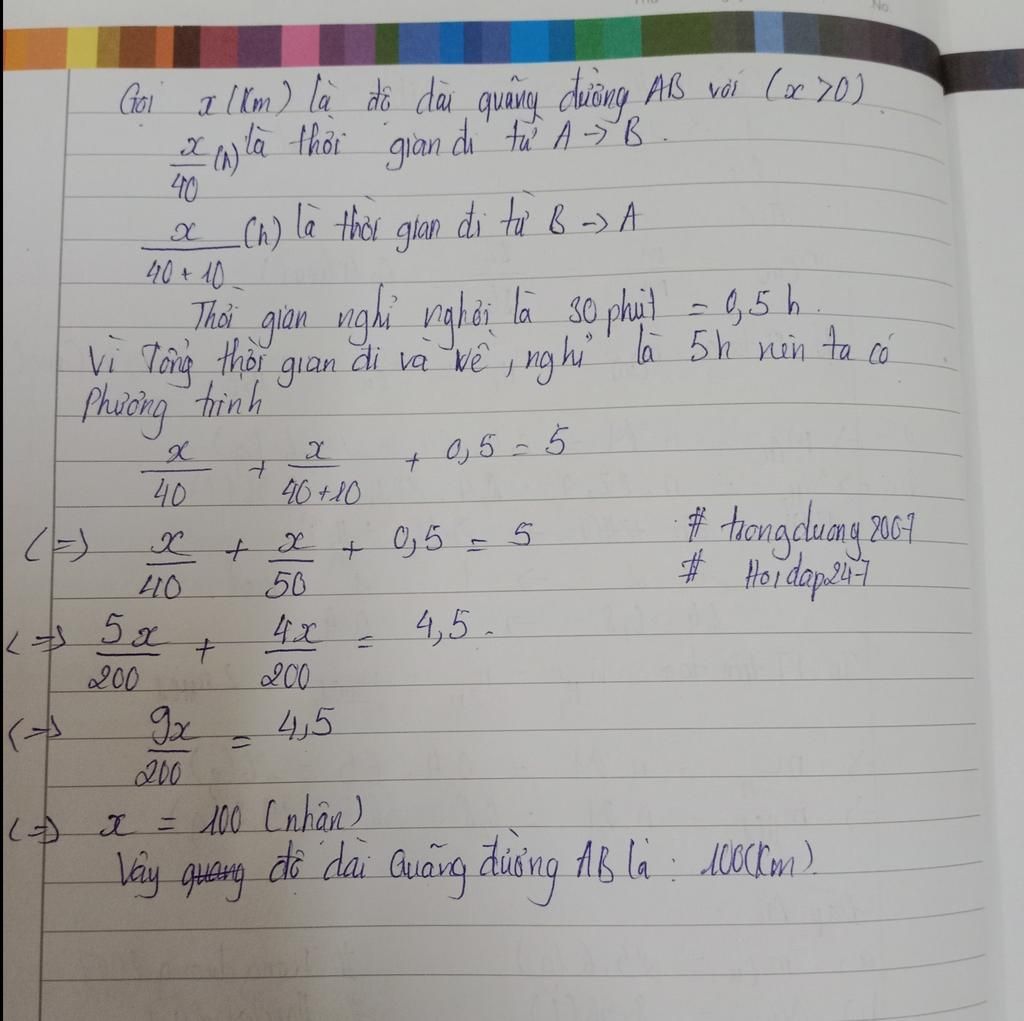 No.
Gọi x(km) là độ dài quãng đường AB với (x>0)
x/40 (h) là thời gian đi từ A → B.
x/(40+10) (h) là thời gian đi từ B → A
Thời gian nghỉ nghơi là 30 phút = 0,5 h.
Vì Tổng thời gian đi và về, nghỉ là 5h nên ta có
Phương trình
x/40 + x/(40+10) + 0,5 = 5
(=) x/40 + x/50 + 0,5 = 5
# trongduong2007
# Hoidap247
(=) 5x/200 + 4x/200 = 4,5
(=) 9x/200 = 4,5
(=) x = 100 (nhận)
Vậy quang độ dài Quãng đường AB là : 100(km).